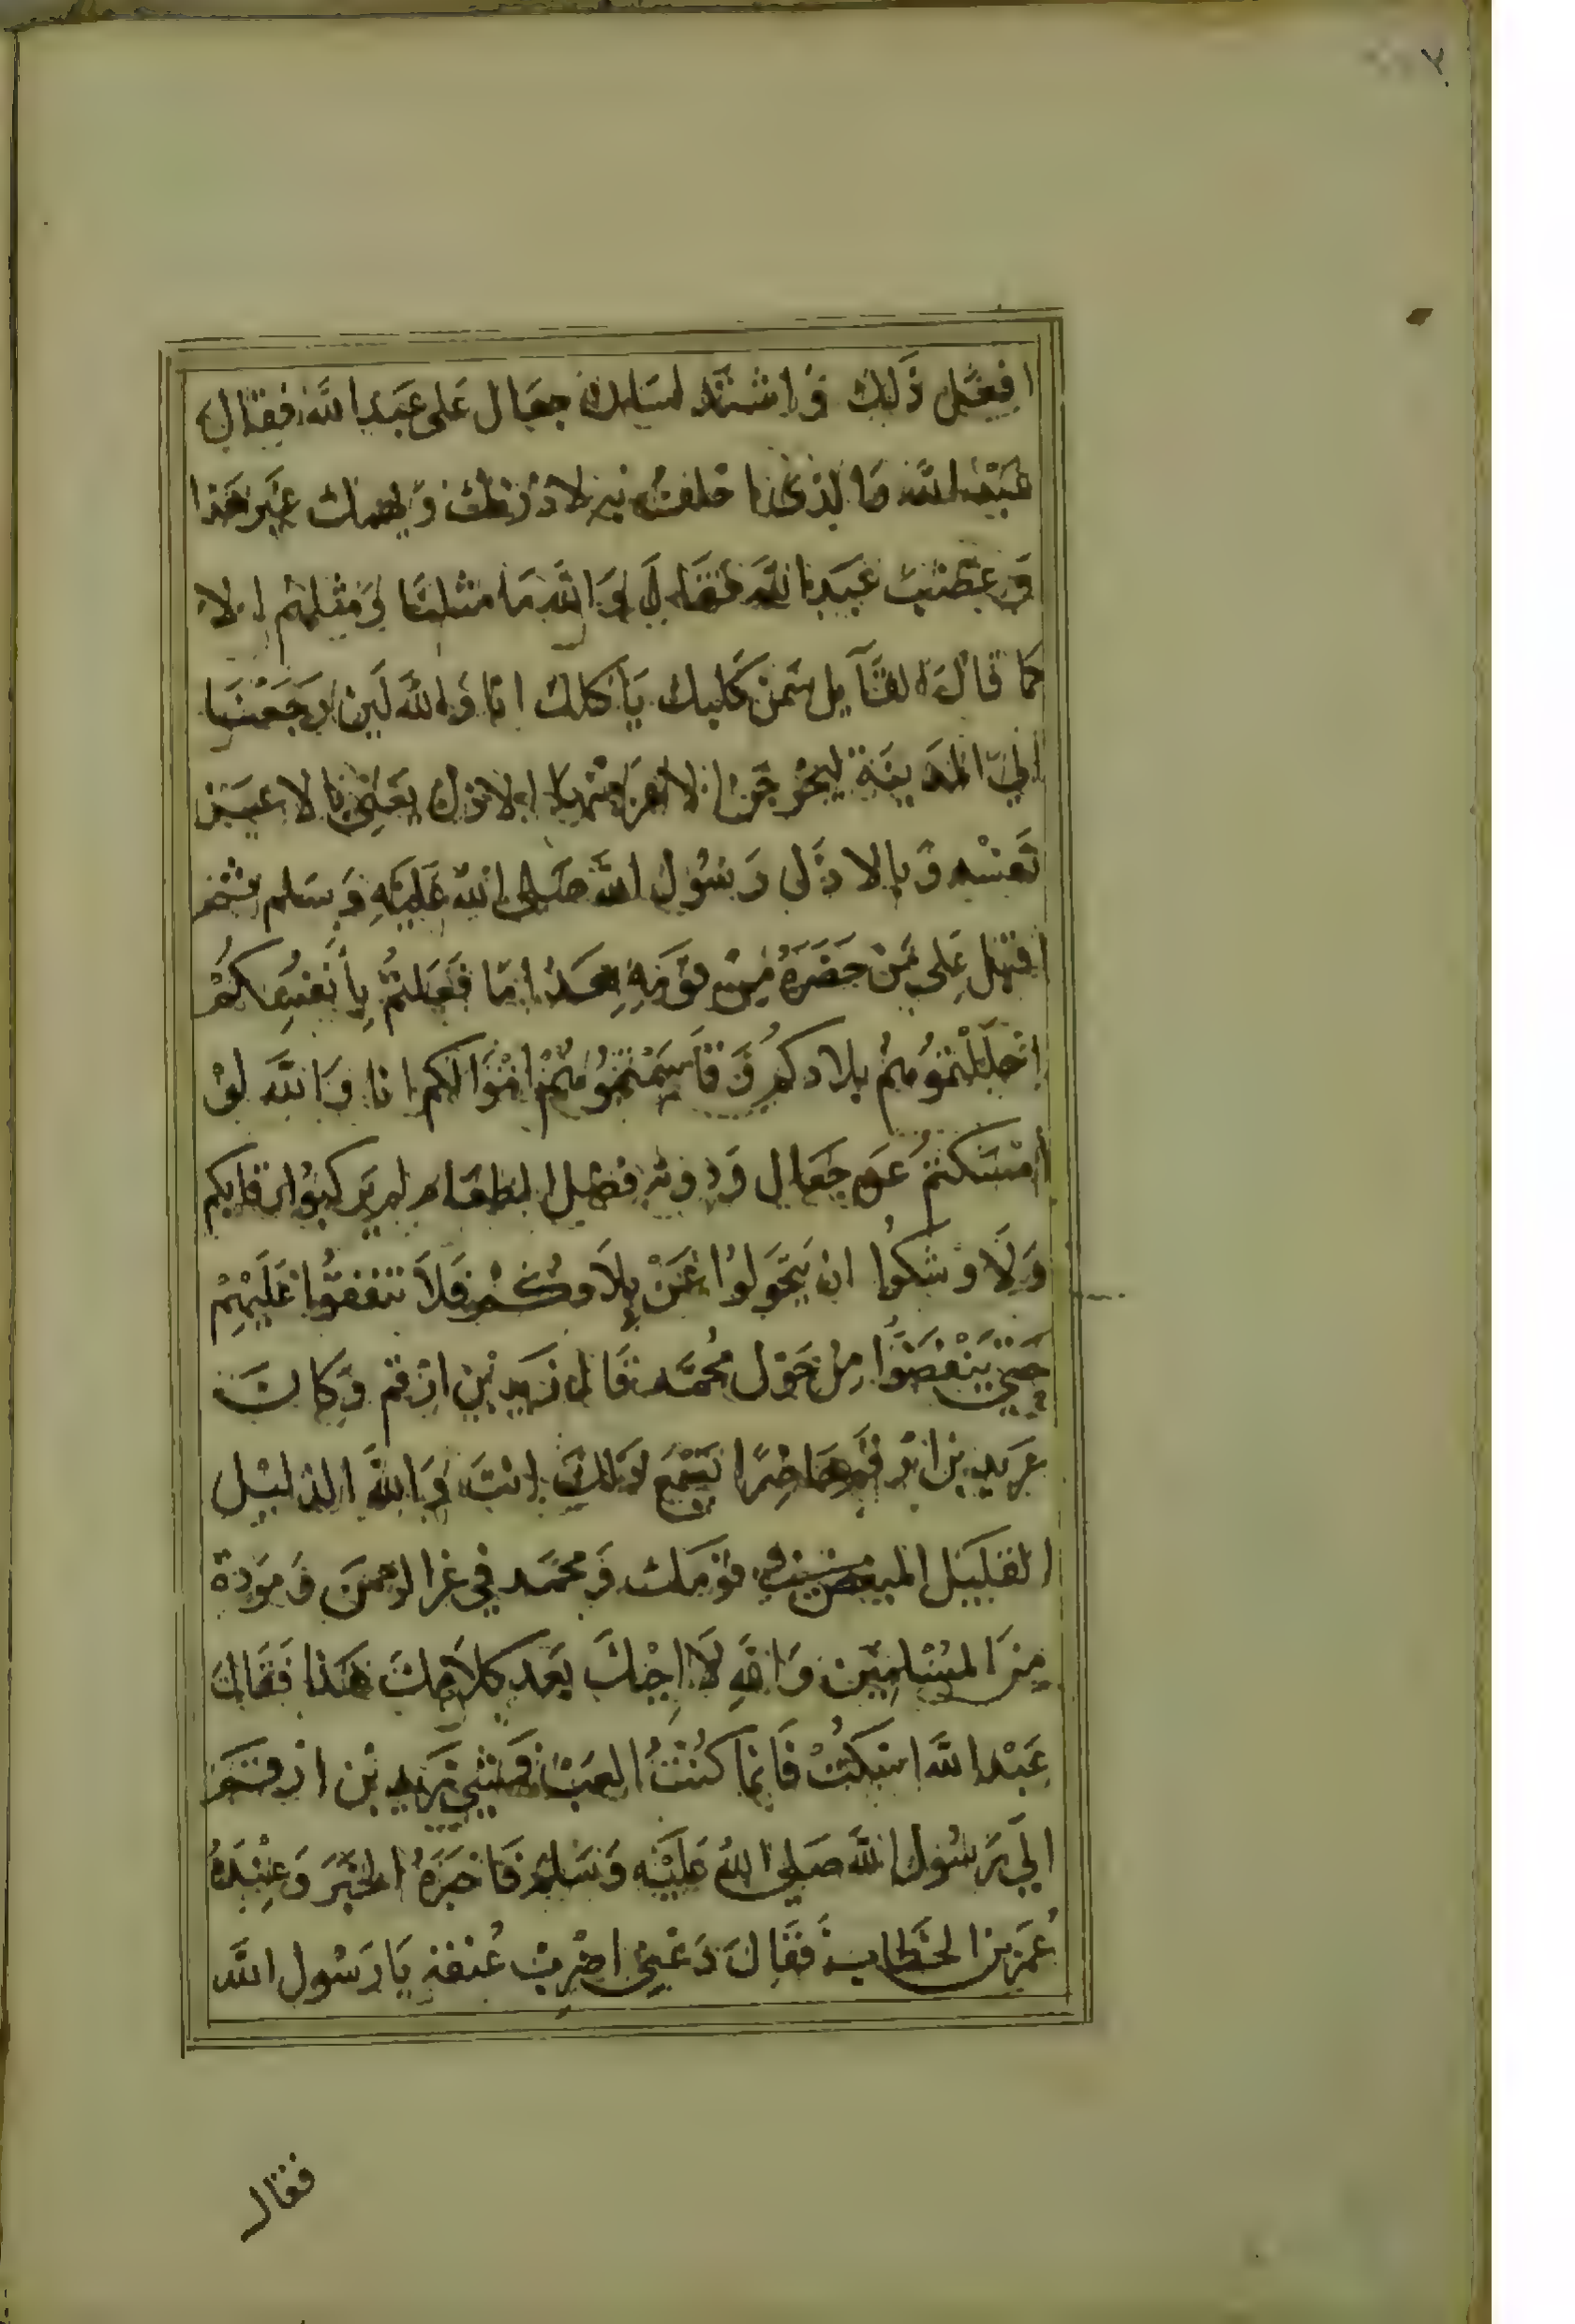 ٧
افعل ذلك واشتد لسان جعال على عبد الله فقال
عبد الله ما لذى غير هذا
وغضب عبد الله فقال والله ما مثلنا ومثلهم الا
كما قال القآيل سمن كلبك يأكلك انا والله لين رجعنا
الى المدينة ليخرجن الاعز منها الاذل يعنى بالاعز
نفسه وبالاذل رسول الله صلى الله عليه وسلم ثم
اقبل على من حضره من قومه هذا ما فعلتم بأنفسكم
احللتموهم بلادكم وقاسمتموهم اموالكم انا والله لو
امسكتم عن جعال وذويه فضل الطعام لم يركبوا رقابكم
ولاوشكوا ان يتحولوا عن بلادكم فلا تنفقوا عليهم
حتى ينفضوا من حول محمد قال زيد بن ارقم وكان
زيد بن ارقم حاضرًا يسمع ذلك انت والله الذليل
القليل المبغض فى قومك ومحمد في عز الرحمن ومودة
من المسلمين والله لا احبك بعد كلامك هذا فقال
عبد الله اسكت فانما كنت العب فمشى زيد بن ارقم
الى رسول الله صلى الله عليه وسلم فاخبره الخبر وعنده
عمر بن الخطاب فقال دعنى اضرب عنقه يا رسول الله
فقال